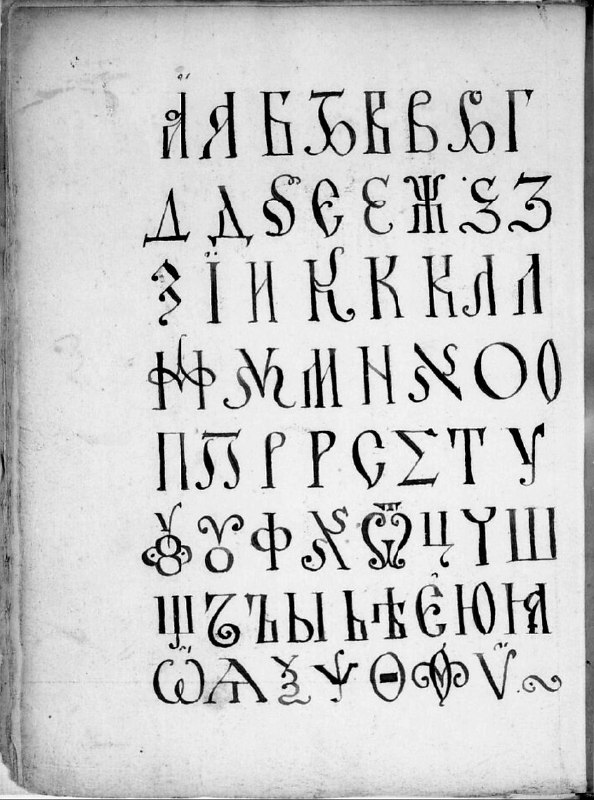 Ӓ А Б Б В В В Г
Д Д Ѕ Є Є Ж З З
З Ї И К К К Л Л
М М М Н Н О О
П П Р Р С Σ Т У
Ꙋ Ꙋ Ф Х Ѿ Ц Ч Ш
Щ Ъ Ъ Ы Ь Ѣ Є Ю Ꙗ
Ѡ̈ Ѧ Ѯ Ѱ Ѳ Ѳ Ѵ̈ ~